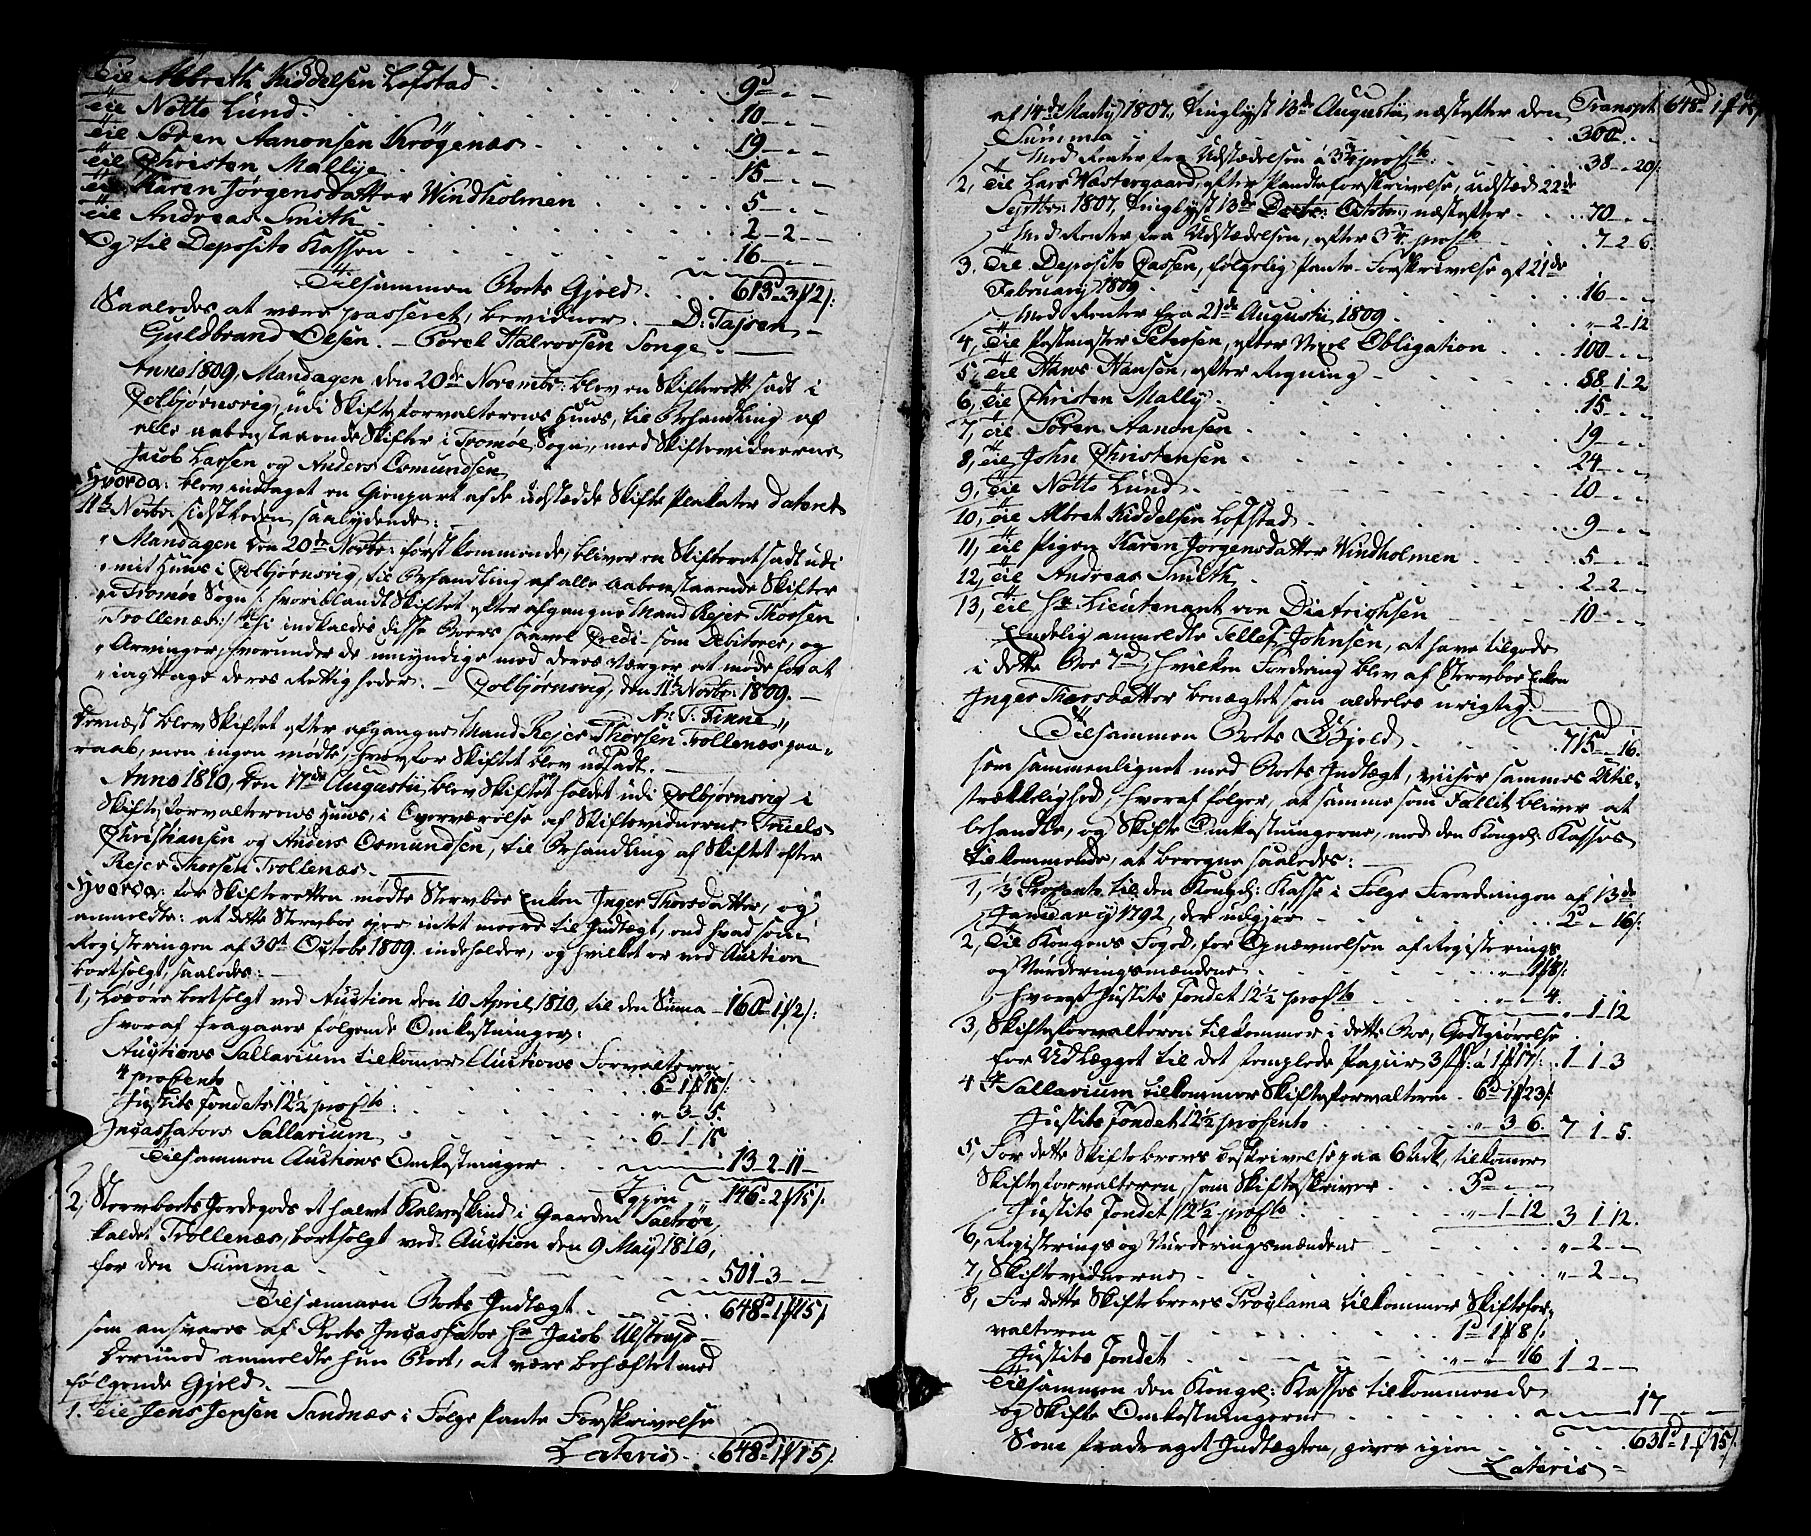 Til Albreth Kiddelsen Lofstad . . . 9d - -
Til Notto Lund . . . 10 - -
Til Søren Aanonsen Krøgenæs . . . 19 - -
Til Christen Mallye . . . 15 - -
Til Karen Jørgensdatter Windholmen . . . 5 - -
Til Andreas Smith . . . 2 - 2 -
Og til Deposito Kassen . . . 16 - -
Tilsammen Boets Gjeld . . . 613d - 3 # 2 s:
Saaledes at være passeret, bevidner. D: Tajsen
Guldbrand Olsen. - Corel Halvorsen Songe.
Anno 1809, Mandagen, den 20de Novembr: blev en Skifteret sadt i
Colbjørnsvig, udi Skifteforvalterens Huus, til Behandling af
alle aabenstaaende Skifter i Tromøe Sogn, med Skiftevidnerne
Jacob Larsen og Anders Osmundsen
Hvorda: blev indtaget en Gienpart af de udstædde Skifte Plakater dateret
11te Novbr: sidstleden, saalydende:
" Mandagen den 20de Novbr: førstkommende, bliver en Skifteret sadt udi
" mit Huus i Colbjørnsvig, til Behandling af alle aabenstaaende Skifter
" i Tromøe Sogn /: hvoriblandt Skiftet efter afgangne Mand Rejer Thorsen
" Trollenæs :/ thi indkaldes disse Boers saavel Credi- som Debitorer, og
" Arvinger, hvorunder de umyndige med deres Værger at møde for at
" iagttage deres Rettigheder. - Colbjørnsvig, den 11te Novbr: 1809. -
A: T: Finne "
Dernæst blev Skiftet efter afgangne Mand Rejer Thorsen Trollenæs paa-
raab, men ingen mødte, hvorfor Skiftet blev udsadt.
Anno 1810, den 17de Augustii, blev Skiftet holdet udi Colbjørnsvig i
Skifteforvalterens Huus, i Overværelse af Skiftevidnerne Truels
Christiansen og Anders Osmundsen, til Behandling af Skiftet efter
Rejer Thorsen Trollenæs.
Hvorda: for Skifteretten mødte Stervboe Enken Inger Thorsdatter, og
anmeldte: at dette Stervboe ejer intet meere til Indtægt, end hvad som
Registeringen af 30d October 1809. indeholder, og hvilket er ved Auction
bortsolgt, saaledes:
1, Løsøre bortsolgt ved Auction den 10 April 1810, til den Summa - 160d - 1 # 2 s:
hvoraf fragaaer følgende Omkostninger:
Auctions Sallarium tilkommer Auctions Forvalteren
4 procento . . . 6d 1 # 15 s:
Justits Fondets 12½ procto: . . . " - 3 - 5.
Incassators Sallarium . . . 6 - 1 - 15
Tilsammen Auctions Omkostninger . . . 13 - 2 - 11 -
Igjen . . . 146d - 2 # 15 s:
2, Stervboets Jordegods et halvt Kalveskind i Gaarden Sætrøe,
kaldet Trollenæs, bortsolgt ved Auction den 9 May 1810,
for den Summa . . . 501 - 3 - -
Tilsammen Boets Indtægt . . . 648d - 1 # 15 s
som ansvares af Boets Incassator Hr Jacob Ulstrup -
Derimod anmeldte hun Boet, at være behæftet med
følgende Gjeld.
1. Til Jens Jensen Sandnæs i Følge Pante Forskrivelse
Lateris . 648d - 1 # 15 s
af 14de Martij 1807, Tinglyst 13de Augustii, næstefter den Transpt: 648d - 1 # 15 s
Summa . . . 300d . .
Med Renter fra Udstædelsen á 3¾ procto . . . 38 - - 20 s
2, Til Lars Wæstergaard, efter Pandteforskrivelse, udstæd 22de
Septbr: 1807, Tinglyst 13de Decbr: Octobr:, næstefter . . . 70 - -
Med Renter fra Udstædelsen, efter 3¾ procto . . . 7 - 2 - 6.
3. Til Deposito Cassen, følgelig Pante-Forskrivelse af 21de
February 1809 . . . 16 - -
Med Renter fra 21de Augustii 1809 . . . " - 2 - 12
4, Til Postmester Petersen, efter Vexel Obligation . . . 100 - -
5, Til Hans Hansen, efter Regning . . . 58 - 1 - 2
6, Til Christen Mally . . . 15 - -
7, Til Søren Aanonsen . . . 19 - -
8, Til John Christensen . . . 24 - -
9, Til Notto Lund . . . 10 - -
10, Til Albret Kiddelsen Lofstad . . . 9 - -
11, Til Pigen Karen Jørgensdatter Windholmen . . . 5 - -
12, Til Andreas Smith . . . 2 - 2 -
13, Til Hr Lieutenant von Diatrighsen . . . 10 - -
Endelig anmeldte Tellef Johnsen, at have tilgode
i dette Boe 7d, hvilken Fordring blev af Stervboe Enken
Inger Thorsdatter benægtet som aldeeles urigtig.
Tilsammen Boets Gjeld . . . 715d - 16.
som sammenlignet med Boets Indtægt, viiser sammes Util-
strækkelighed, hvoraf følger, at samme som Fallit bliver at
behandle, og Skifte Omkostningerne, med den Kongel: Kasses
tilkommende, at beregne saaledes:
1, ⅓ Procento til den Kongel: Kasse i Følge Forordningen af 13de
January 1792, der udgjør . . . 2d - 16 s:
2, Til Kongens Foged, for Opnævnelsen af Registerings
og Vurderingsmændene . . . " 1 # 8 s:
hvoraf Justits Fondet 12½ procto . . . " - 4. " - 1 - 12
3, Skifteforvalteren tilkommer i dette Boe, Godtgiørelse
for Udlægget til det stemplede Papiir 3 # á 1 # 17 s: 1 - 1 - 3
4 Sallarium tilkommer Skifteforvalteren . 6d 1 # 23 s:
Justits Fondet 12½ procento . . . " - 3 6. 7 - 1 - 5.
5, For dette Skiftebrevs Beskrivelse paa 6 Ark, tilkommer
Skifteforvalteren, som Skifteskriver . . . 3d - -
Justits Fondet 12½ procto . . . " - 1 - 12 3 1 12.
6, Registerings og Vurderingsmændene . . . " - 2 - -
7, Skiftevidnerne . . . " - 2 - -
8, For dette Skiftebrevs Proclama tilkommer Skiftefor-
valteren . . . 1d 1 # 8 s:
Justits Fondet . . . " - " - 16 1 - 2 - -
Tilsammen den Kongel: Kasses tilkommende
og Skifte Omkostningerne . . . 17 - -
Som fradraget Indtægten, giver igien . . . 631d - 1 # 15 s:
Lateris